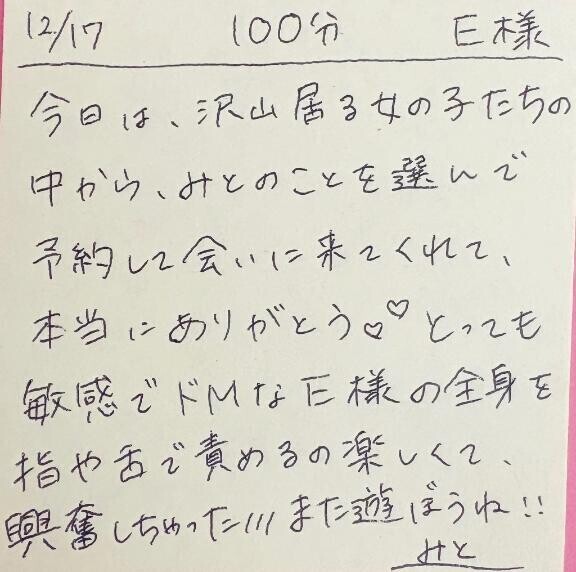 12/17 100分 E様
今日は、沢山居る女の子たちの
中から、みとのことを選んで
予約して会いに来てくれて、
本当にありがとう♡♡とっても
敏感でドMなE様の全身を
指や舌で責めるの楽しくて、
興奮しちゃった/// また遊ぼうね!!
みと